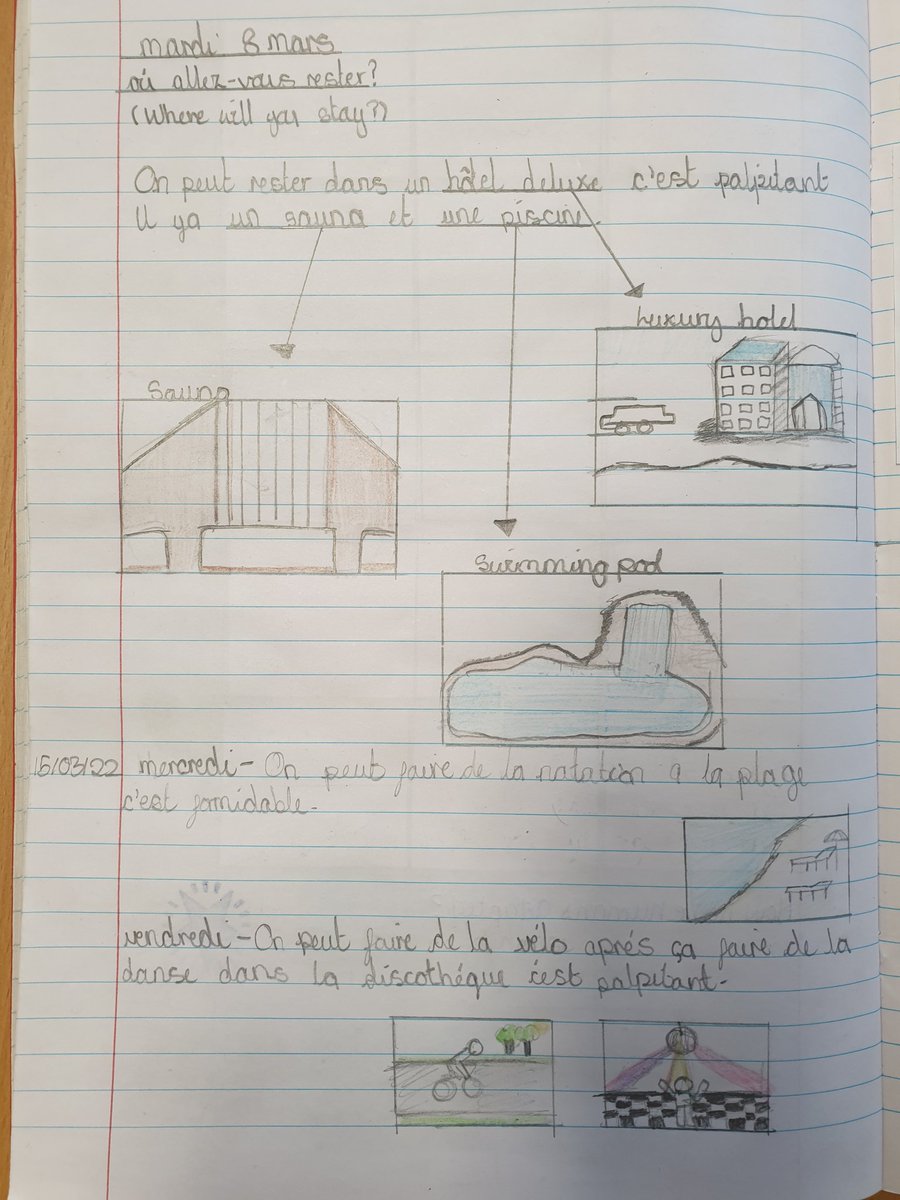 mardi 8 mars
où allez-vous rester?
(Where will you stay?)
On peut rester dans un hôtel deluxe c'est palpitant
Il ya un sauna et une piscine.
Luxury hotel
Sauna
Swimming pool
15/03/22 mercredi - On peut faire de la natation a la plage
c'est formidable.
vendredi - On peut faire de la vélo aprés ça faire de la
danse dans la discothéque c'est palpitant.